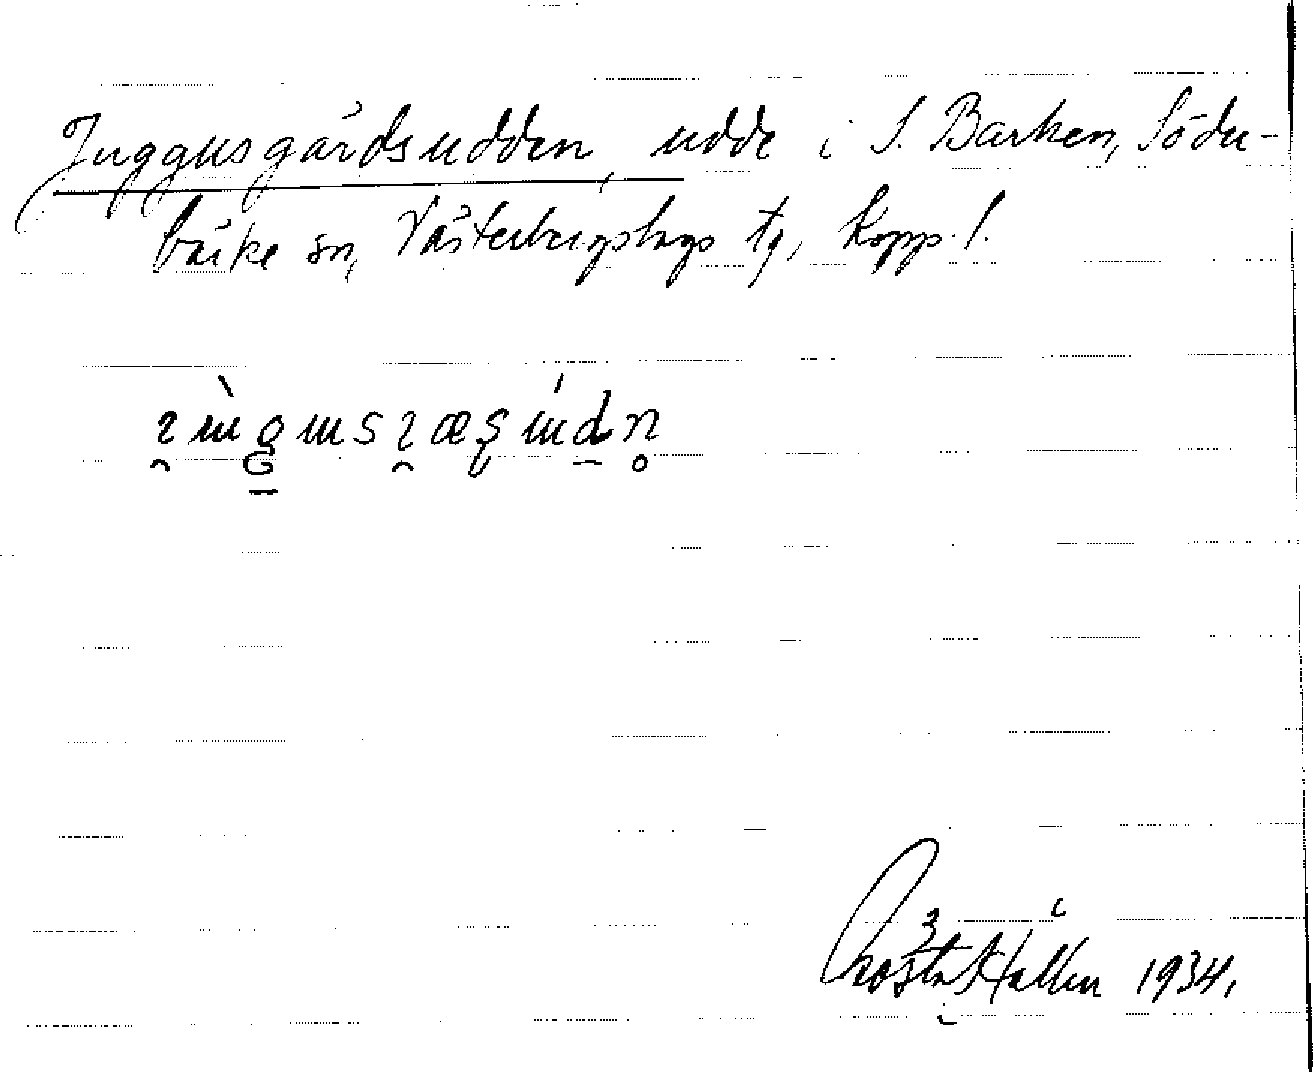 Juggusgårdsudden, udde i S. Barken, Söder-
bärke sn, Västerbergslags tg, Kopp. l.
Gösta Hallén 1934.